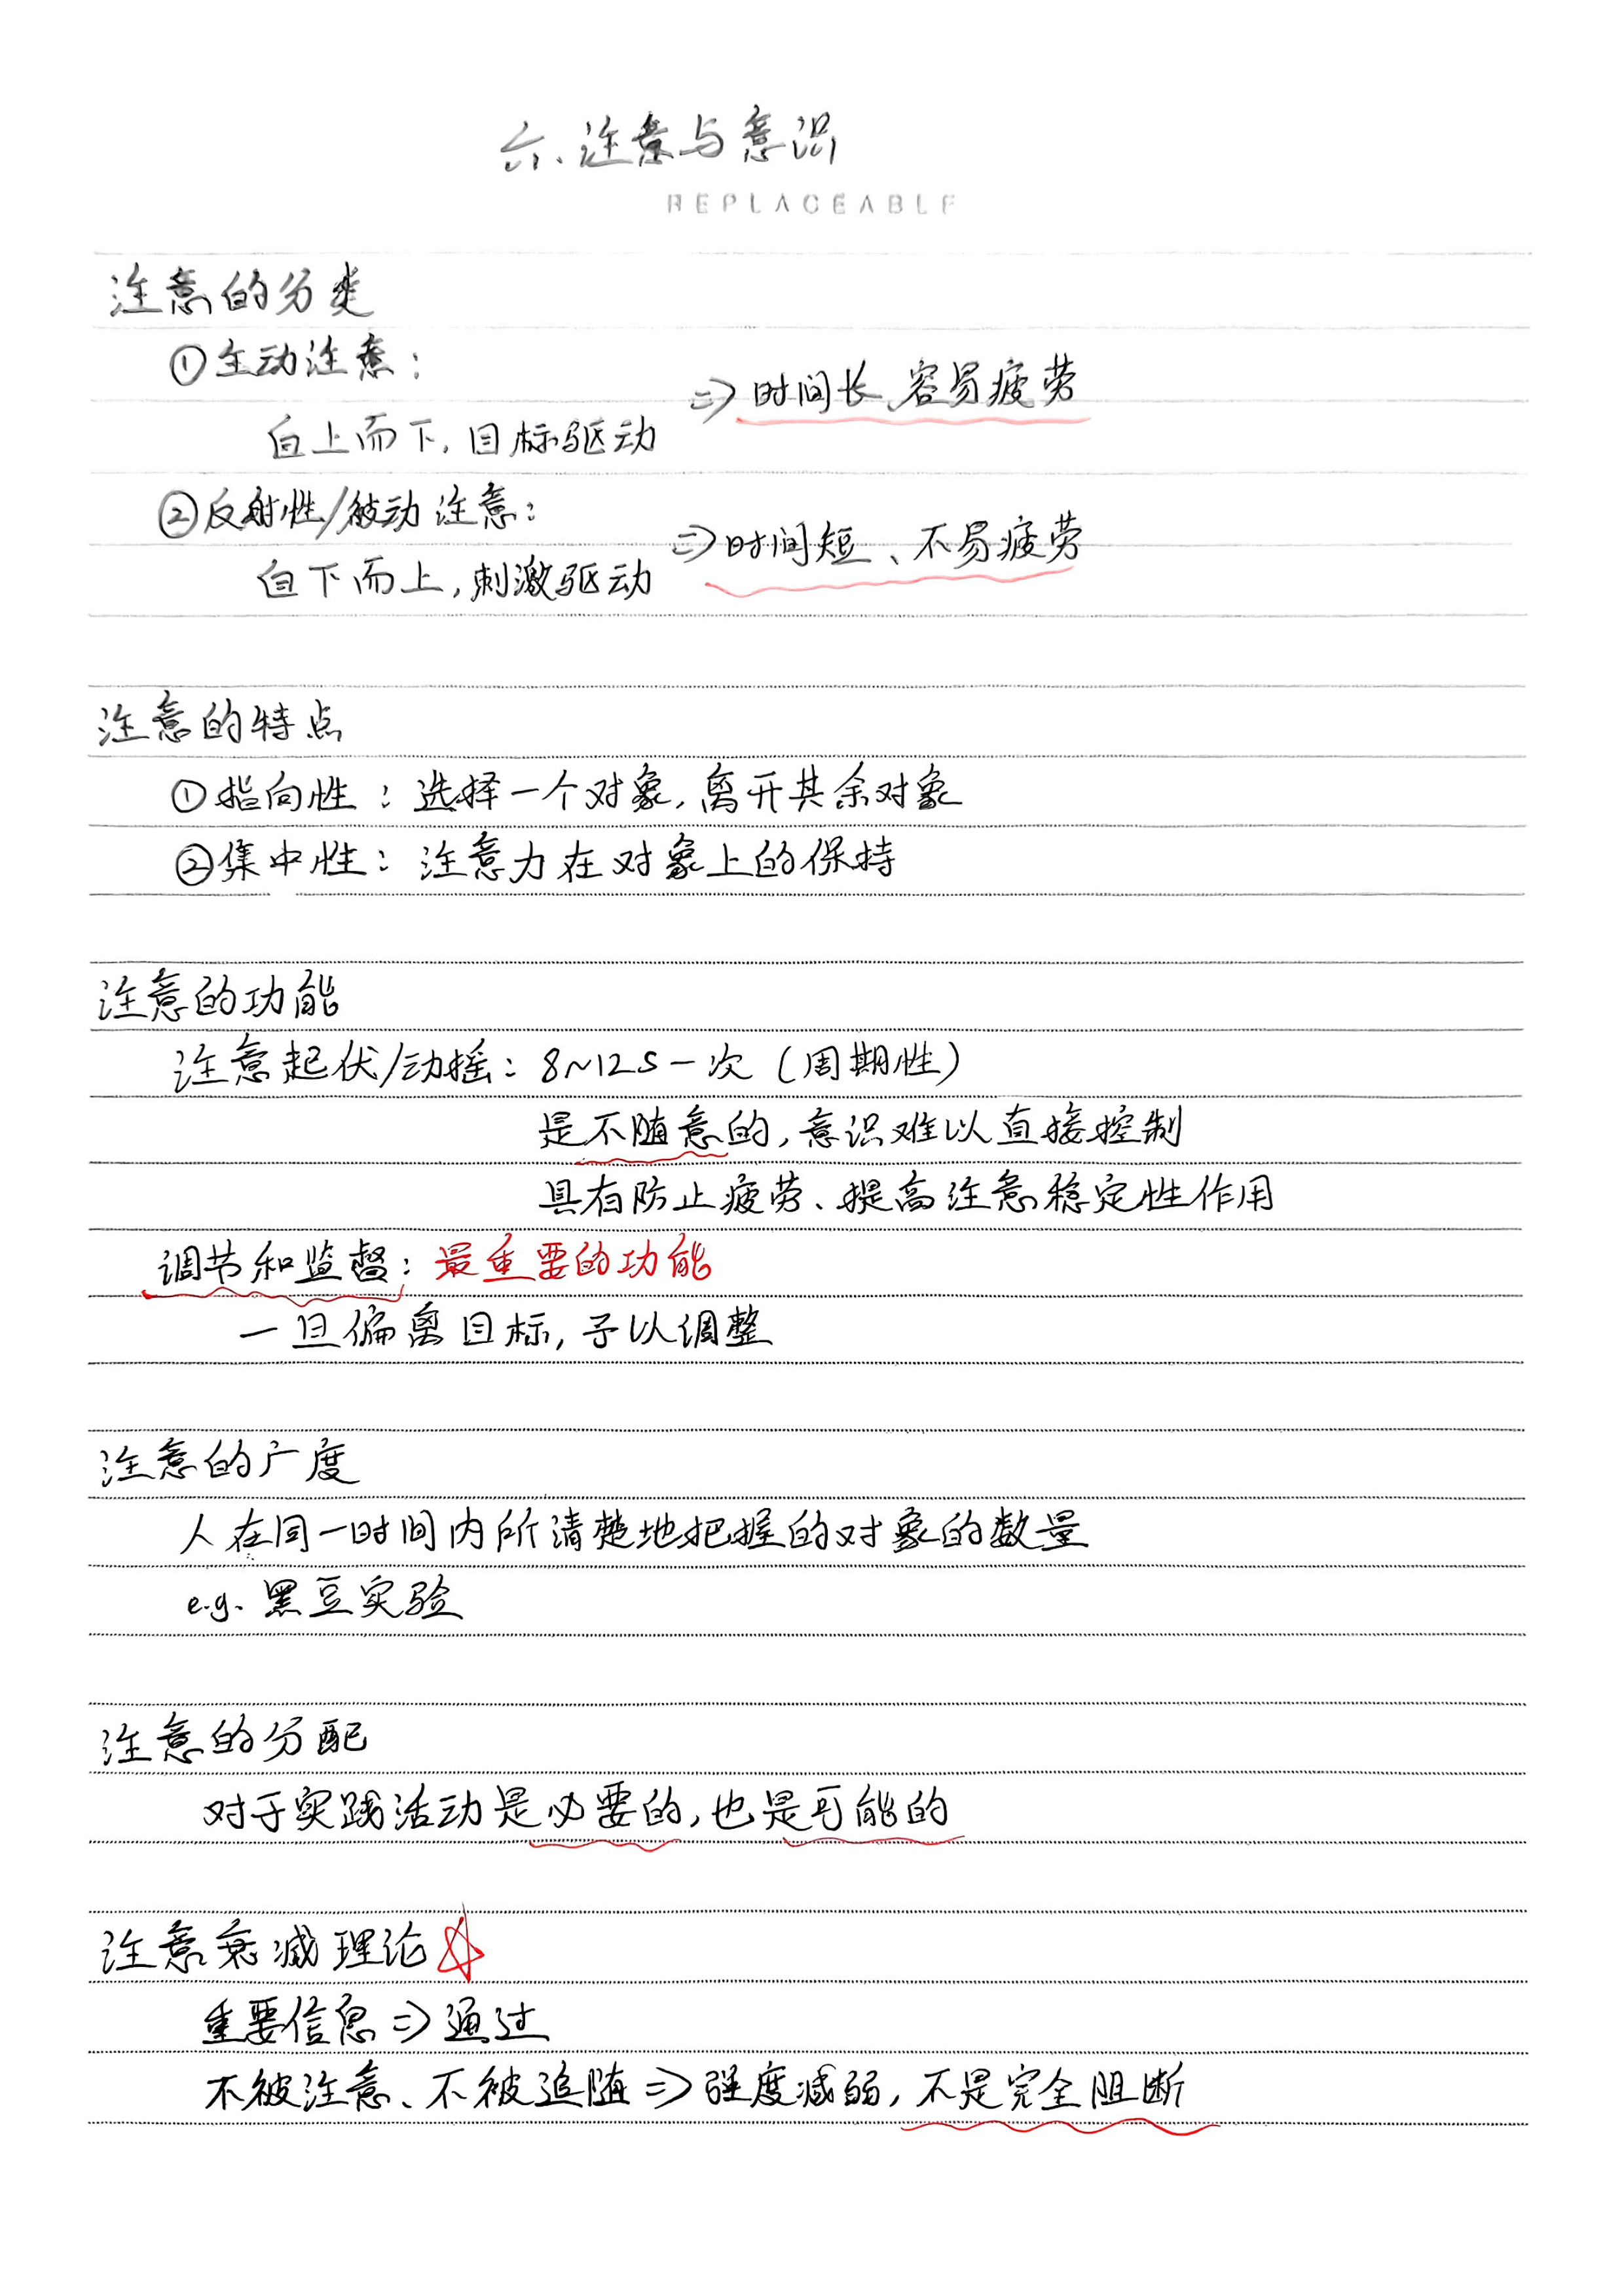 六、注意与意识
REPLACEABLE
注意的分类
①主动注意：
自上而下，目标驱动
⇒时间长、容易疲劳
②反射性/被动注意：
自下而上，刺激驱动
⇒时间短、不易疲劳
注意的特点
①指向性：选择一个对象，离开其余对象
②集中性：注意力在对象上的保持
注意的功能
注意起伏/动摇：8~12s一次（周期性）
是不随意的，意识难以直接控制
具有防止疲劳、提高注意稳定性作用
调节和监督：最重要的功能
一旦偏离目标，予以调整
注意的广度
人在同一时间内所清楚地把握的对象的数量
e.g. 黑豆实验
注意的分配
对于实践活动是必要的，也是可能的
注意衰减理论☆
重要信息⇒通过
不被注意、不被追随⇒强度减弱，不是完全阻断